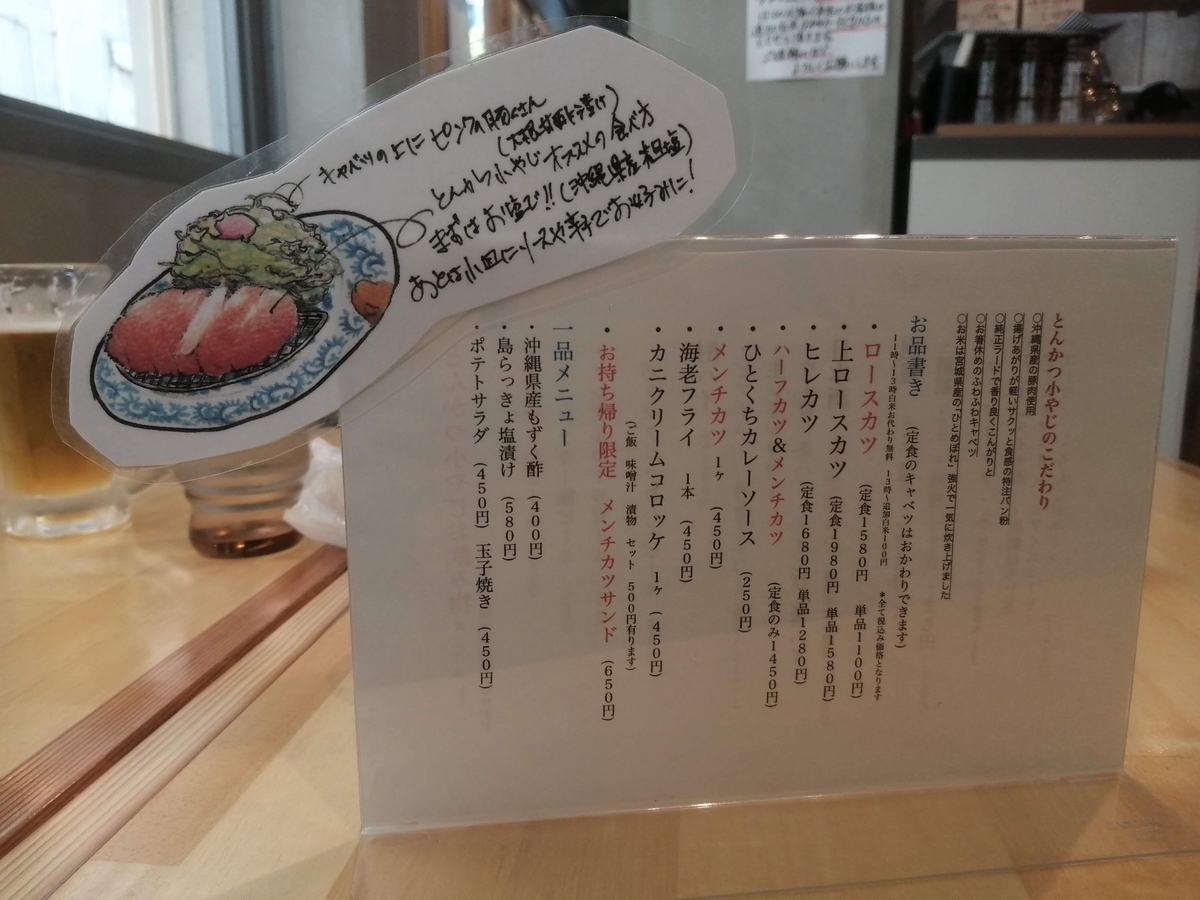 キャベツの上にピンクの豚くさん
とんかつ小やじオススメの食べ方
まずはお塩で!!(沖縄県産粗塩)
あとは小皿にソースや辛子でお好みに!
とんかつ小やじのこだわり
○沖縄県産の豚肉使用
○揚げあがりが軽いサクッと食感の特注パン粉
○純正ラードで香り良くこんがりと
○お箸休めのふわふわキャベツ
○お米は宮城県産の「ひとめぼれ」強火で一気に炊き上げました
お品書き (定食のキャベツはおかわりできます)
11時~13時白米お代わり無料 13時~追加白米100円 *全て税込み価格となります
・ロースカツ (定食1580円 単品1100円)
・上ロースカツ (定食1980円 単品1580円)
・ヒレカツ (定食1680円 単品1280円)
・ハーフカツ&メンチカツ (定食のみ1450円)
・ひとくちカレーソース (250円)
・メンチカツ 1ヶ (450円)
・海老フライ 1本 (450円)
・カニクリームコロッケ 1ヶ (450円)
(ご飯 味噌汁 漬物 セット 500円有ります)
・お持ち帰り限定 メンチカツサンド (650円)
一品メニュー
・沖縄県産もずく酢 (400円)
・島らっきょ塩漬け (580円)
・ポテトサラダ (450円) 玉子焼き (450円)